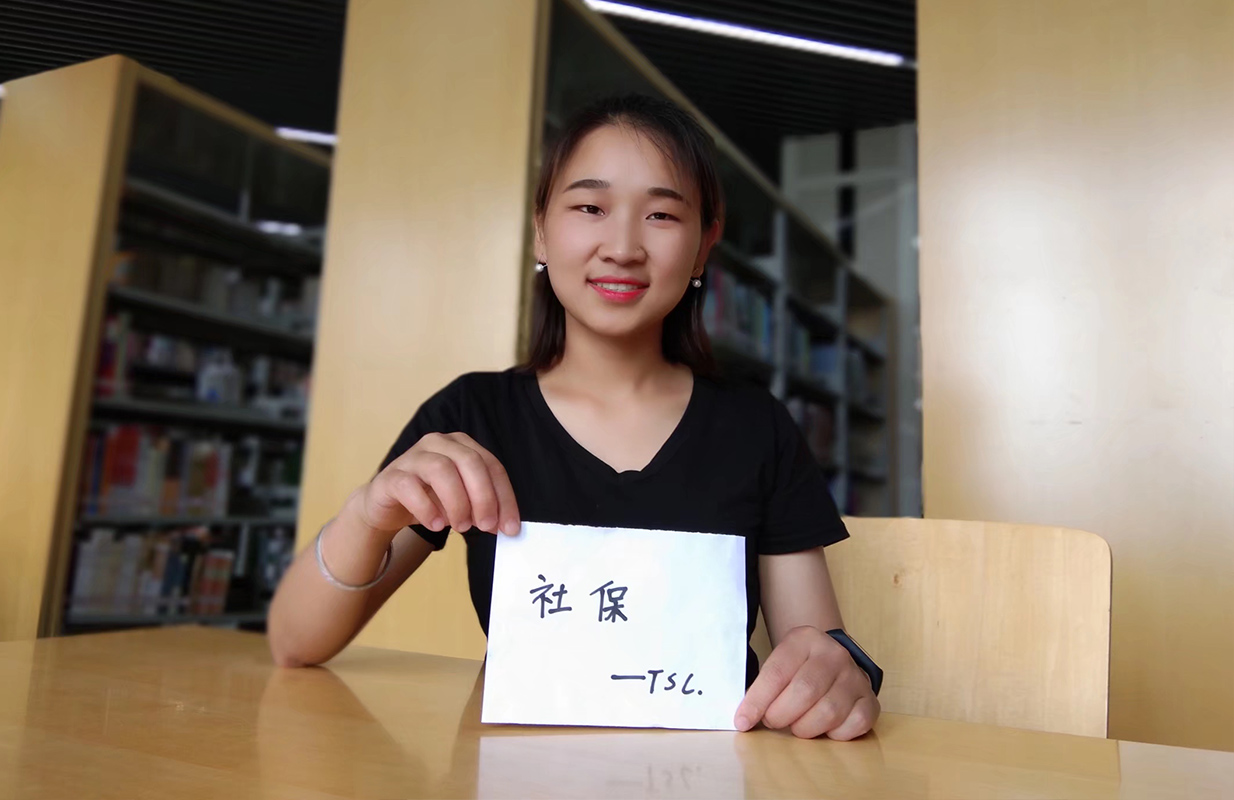 社保
—TSL.